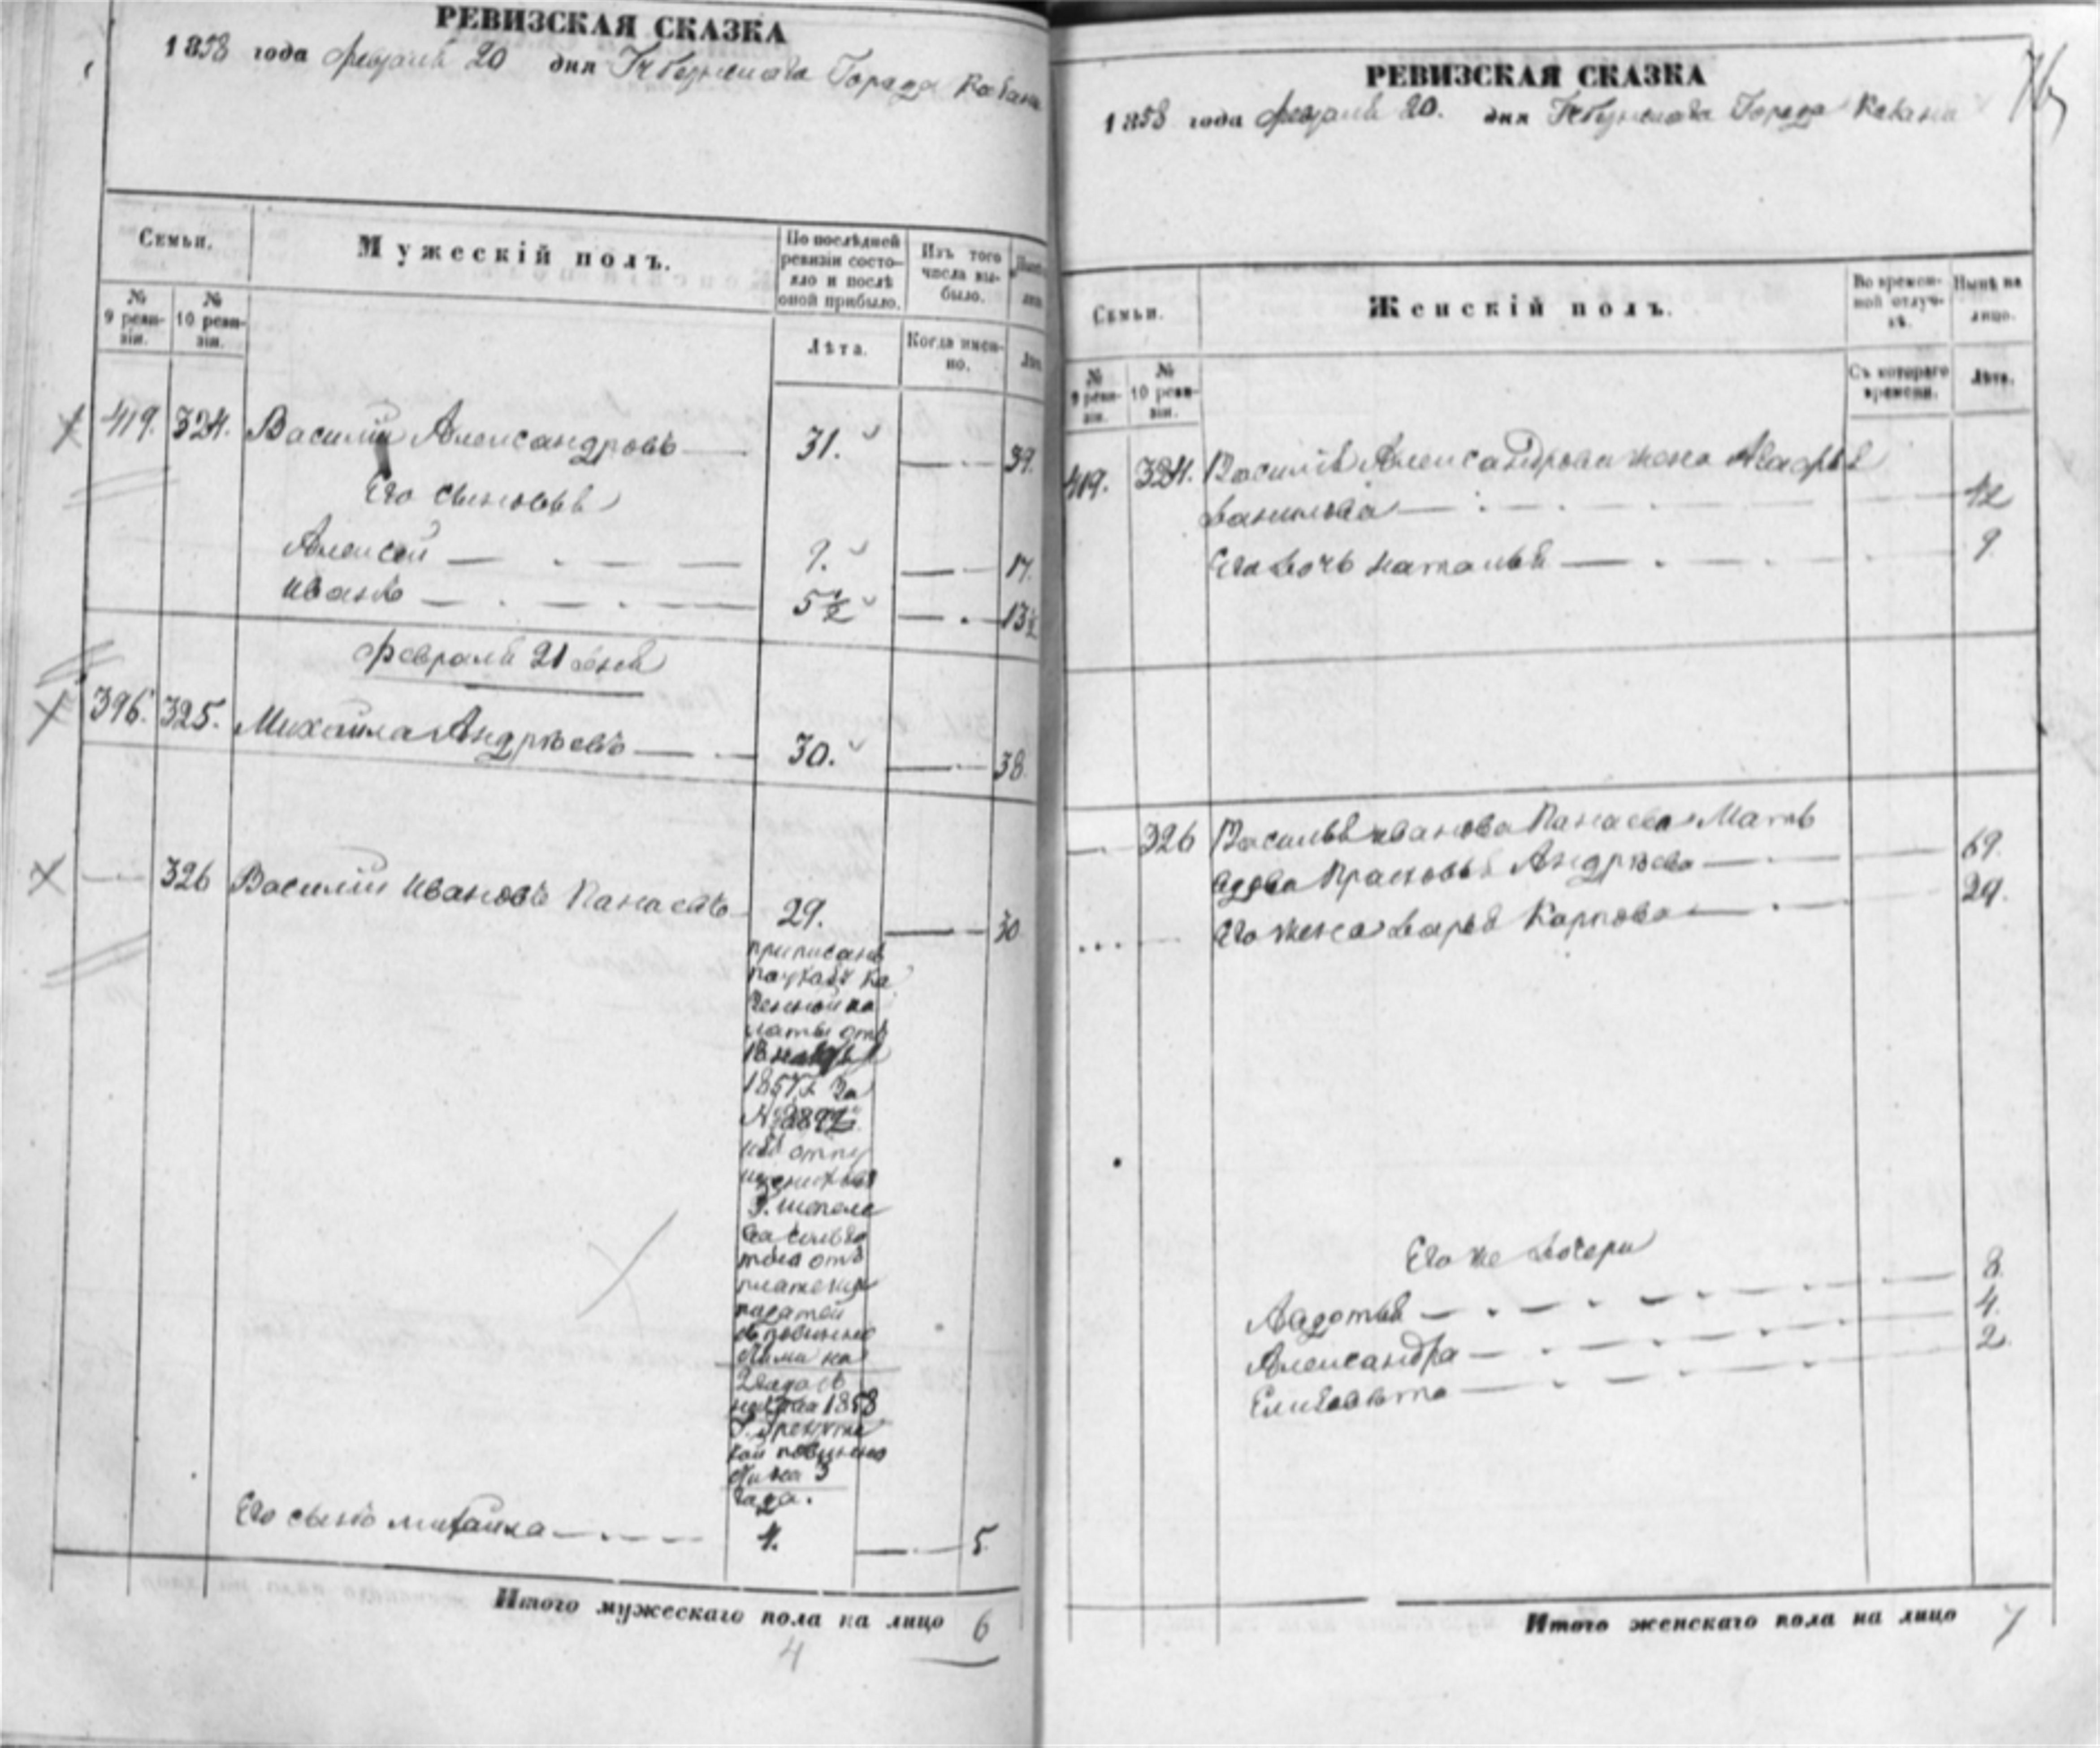 РЕВИЗСКАЯ СКАЗКА
1858 года февраля 20 дня Губернскаго Города Казани
Семьи.
Мужескій полъ.
По послѣдней ревизіи состояло и послѣ оной прибыло.
Изъ того числа выбыло.
№ 9 ревизіи.
№ 10 ревизіи.
Лѣта.
Когда именно.
419. 324. Василій Александровъ 31. 39.
Его сыновья
Алексей 9. 17.
Иванъ 5 1/2 13 1/2
Февраля 21 дня
396. 325. Михаила Андрѣевъ 30. 38.
326 Василій Ивановъ Панаевъ 29. 30
приписанъ
по указу Ка
зенной па
латы отъ
18
1857 г. за
№
изъ отпу
щенныхъ
Г.
платежа
податей
повинно
стями на
2 года съ
1858
Г.
кой повинно
сти на 3
года.
Его сынъ Михаила 4. 5.
Итого мужескаго пола на лицо 6
4
РЕВИЗСКАЯ СКАЗКА
76
1858 года февраля 20. дня Губернскаго Города Казани
Семьи.
Женскій полъ.
Во временной отлучкѣ.
Нынѣ на лицо.
№ 9 ревизіи.
№ 10 ревизіи.
Съ котораго времени.
Лѣта.
419. 324. Василья Александрова жена Агафья
Данилова 42
Его дочь Наталья 9
326 Василья Иванова Панаева Мать
вдова Прасковья Андрѣева 69.
Его жена Дарья Карпова 29.
Его же дочери
Авдотья 8.
Александра 4.
Елизавета 2.
Итого женскаго пола на лицо 7